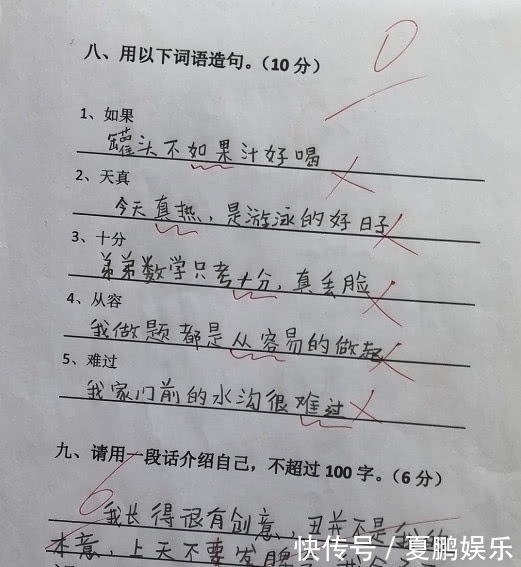 0
八、用以下词语造句。(10 分)
1、如果
罐头不如果汁好喝
2、天真
今天真热，是游泳的好日子
3、十分
弟弟数学只考十分，真丢脸
4、从容
我做题都是从容易的做起
5、难过
我家门前的水沟很难过
九、请用一段话介绍自己，不超过 100 字。(6 分)
6
我长得很有创意，丑并不是我的
本意，上天不要发脾
快传号 / 夏鹏娱乐